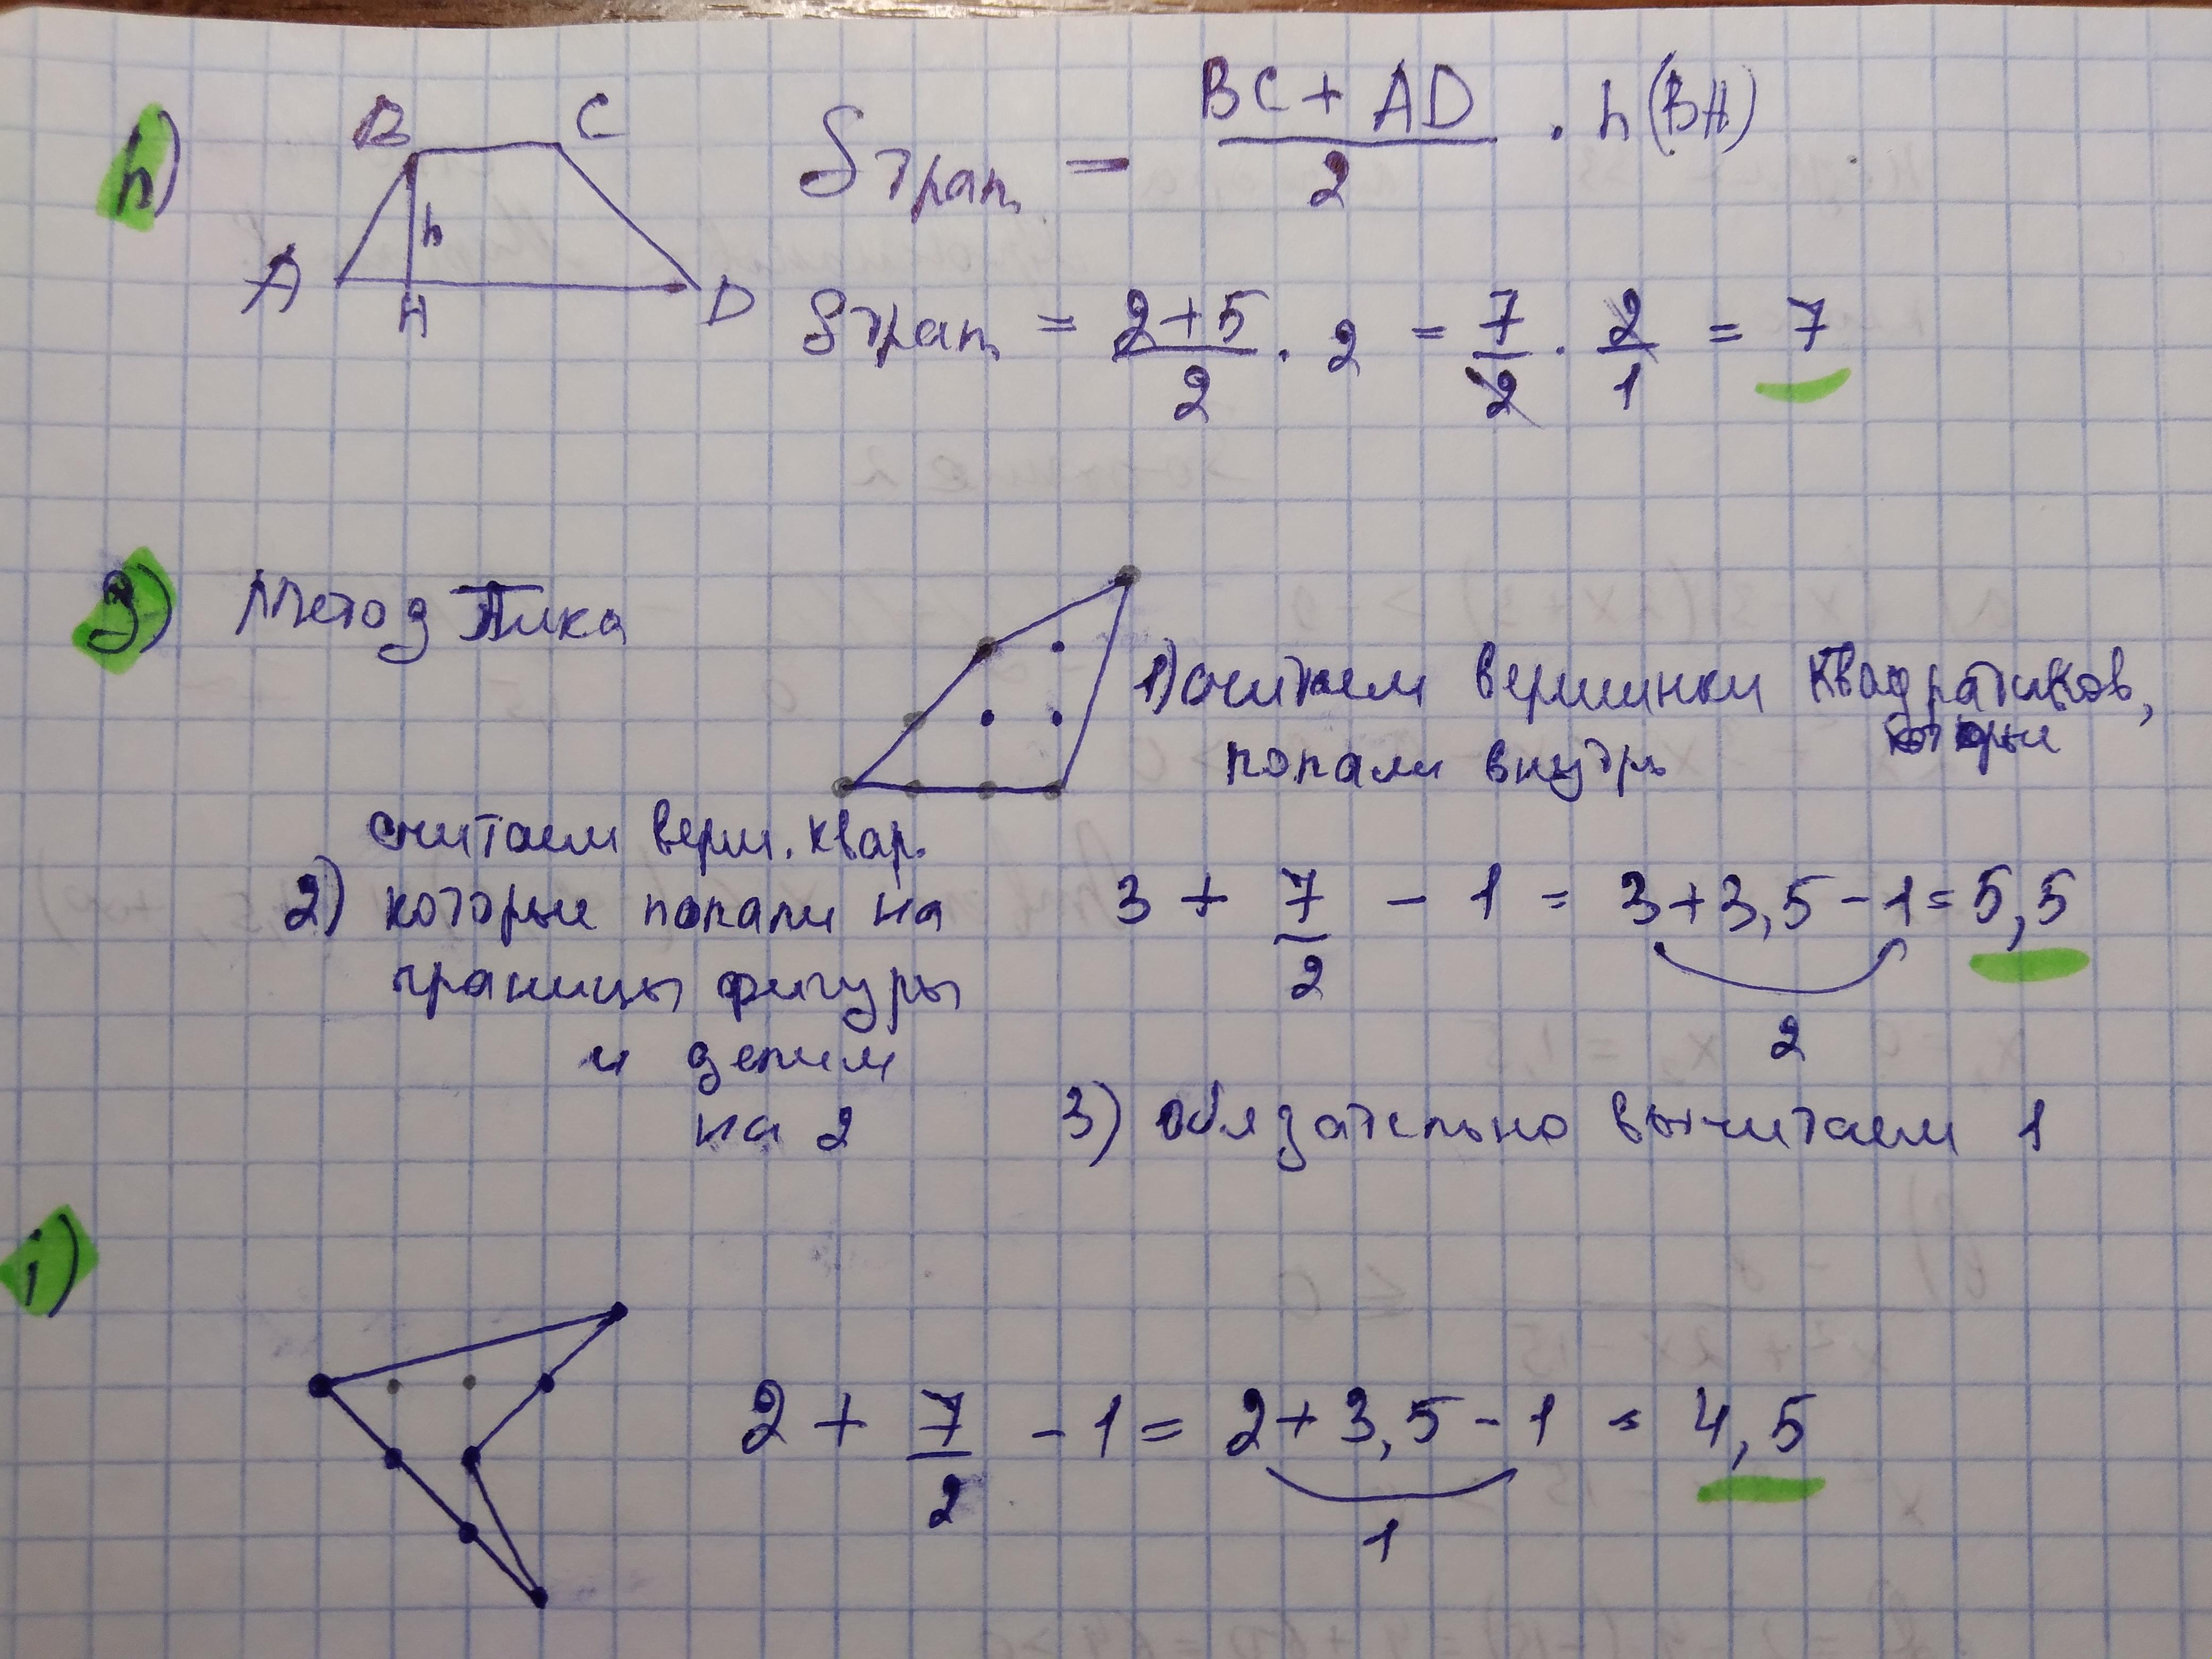 h)
B C
h
A H D
Sтрап = (BC + AD)/2 · h(BH)
Sтрап = (2+5)/2 · 2 = 7/2 · 2/1 = 7
g) Метод Пика
1) считаем вершинки квадратиков, которые
попали внутрь
считаем верш. квар.
2) которые попали на
границы фигуры
и делим
на 2
3 + 7/2 - 1 = 3+3,5-1 = 5,5
2
3) обязательно вычитаем 1
i)
2 + 7/2 - 1 = 2+3,5-1 = 4,5
1